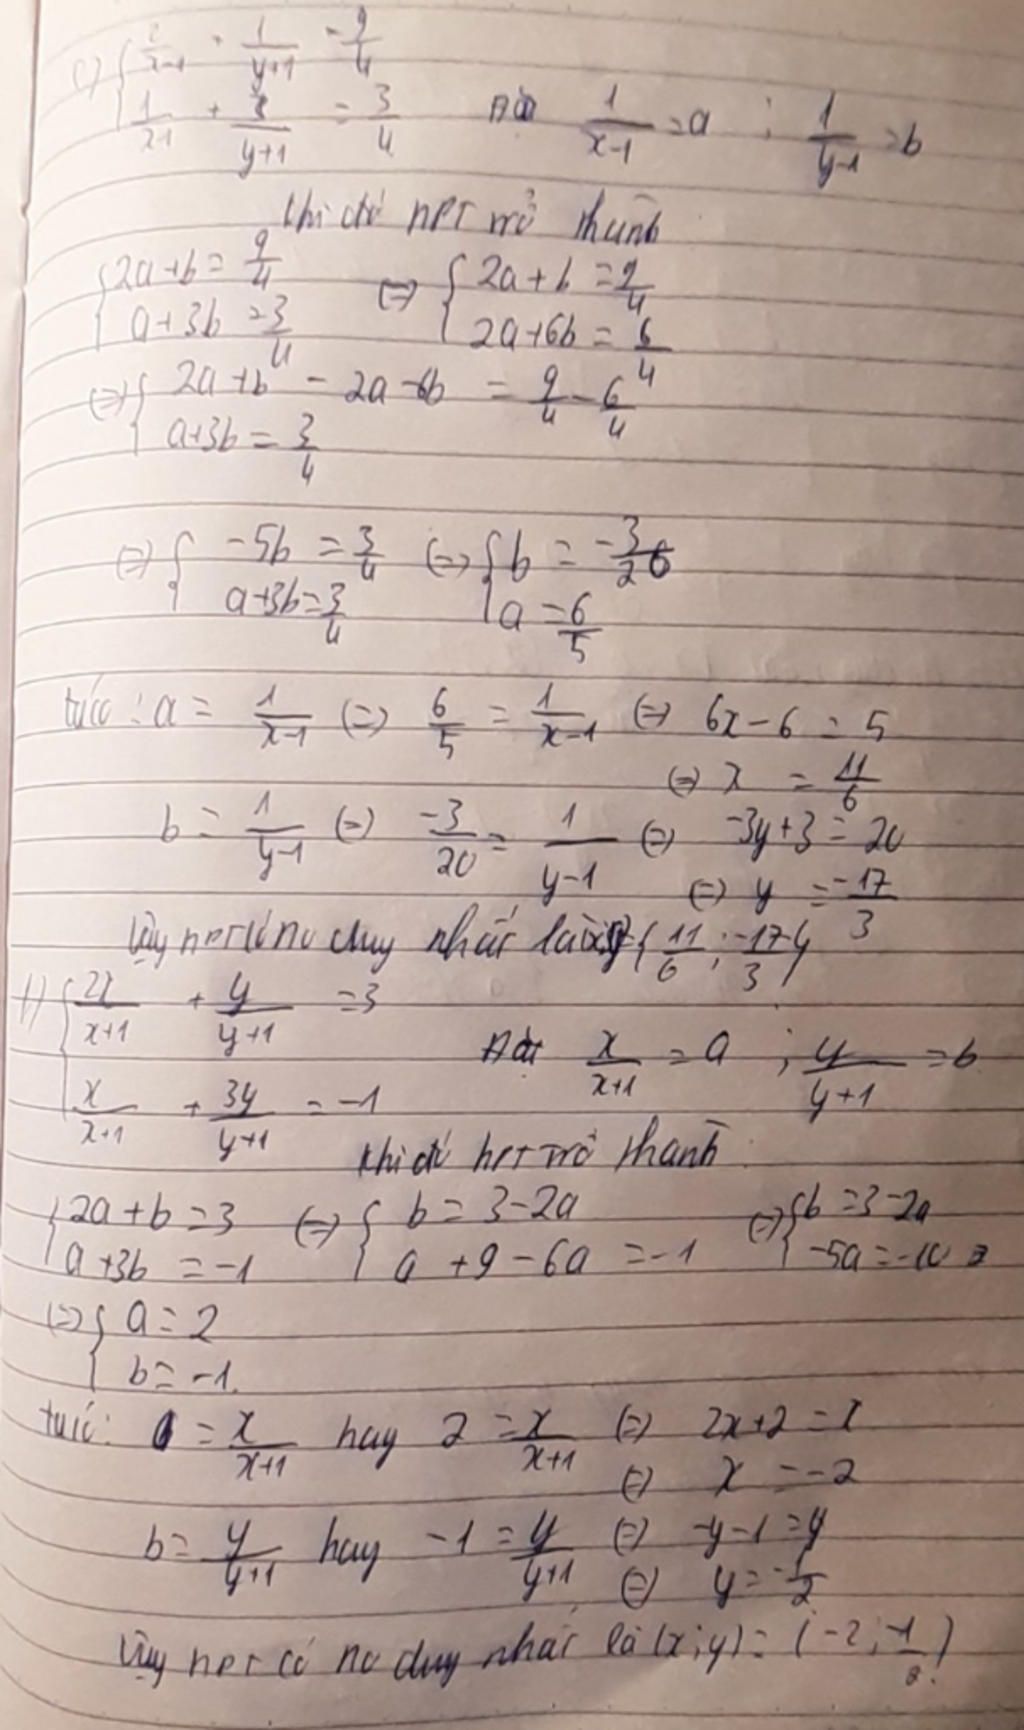 c) { 2/(x-1) + 1/(y+1) = 9/4
1/(x-1) + 3/(y+1) = 3/4 Đặt 1/(x-1) = a ; 1/(y-1) = b
Khi đó HPT trở thành
{ 2a+b = 9/4 ; a+3b = 3/4 (=) { 2a+b = 9/4 ; 2a+6b = 6/4
(=) { 2a+b - 2a-6b = 9/4 - 6/4
a+3b = 3/4
(=) { -5b = 3/4 ; a+3b = 3/4 (=) { b = -3/20 ; a = 6/5
tức : a = 1/(x-1) (=) 6/5 = 1/(x-1) (=) 6x-6 = 5
(=) x = 11/6
b = 1/(y-1) (=) -3/20 = 1/(y-1) (=) -3y+3 = 20
(=) y = -17/3
Vậy HPT có no duy nhất là (11/6 ; -17/3)
f) { 2x/(x+1) + y/(y+1) = 3
Đặt x/(x+1) = a ; y/(y+1) = b
x/(x+1) + 3y/(y+1) = -1
Khi đó hpt trở thành
{ 2a+b = 3 ; a+3b = -1 (=) { b = 3-2a ; a+9-6a = -1 (=) { b = 3-2a ; -5a = -10
(=) { a = 2
b = -1.
tức: a = x/(x+1) hay 2 = x/(x+1) (=) 2x+2 = x
(=) x = -2
b = y/(y+1) hay -1 = y/(y+1) (=) -y-1 = y
(=) y = -1/2
Vậy HPT có no duy nhất là (x;y) = (-2; -1/2)